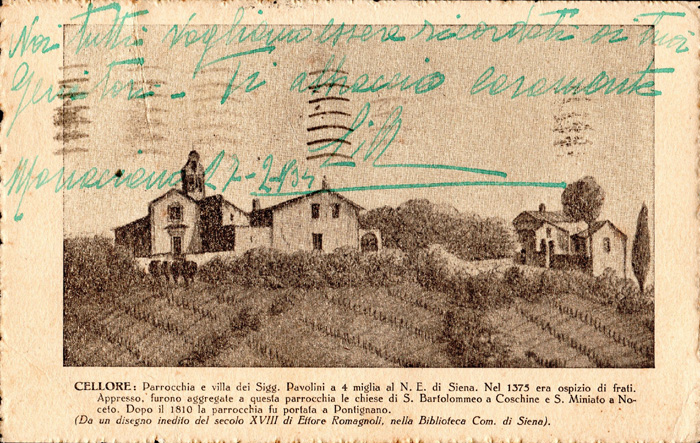 Noi tutti vogliamo essere ricordati ai tuoi
Genitori - Ti abbraccio caramente
27-2-
CELLORE: Parrocchia e villa dei Sigg. Pavolini a 4 miglia al N. E. di Siena. Nel 1375 era ospizio di frati.
Appresso, furono aggregate a questa parrocchia le chiese di S. Bartolommeo a Coschine e S. Miniato a No-
ceto. Dopo il 1810 la parrocchia fu portata a Pontignano.
(Da un disegno inedito del secolo XVIII di Ettore Romagnoli, nella Biblioteca Com. di Siena).